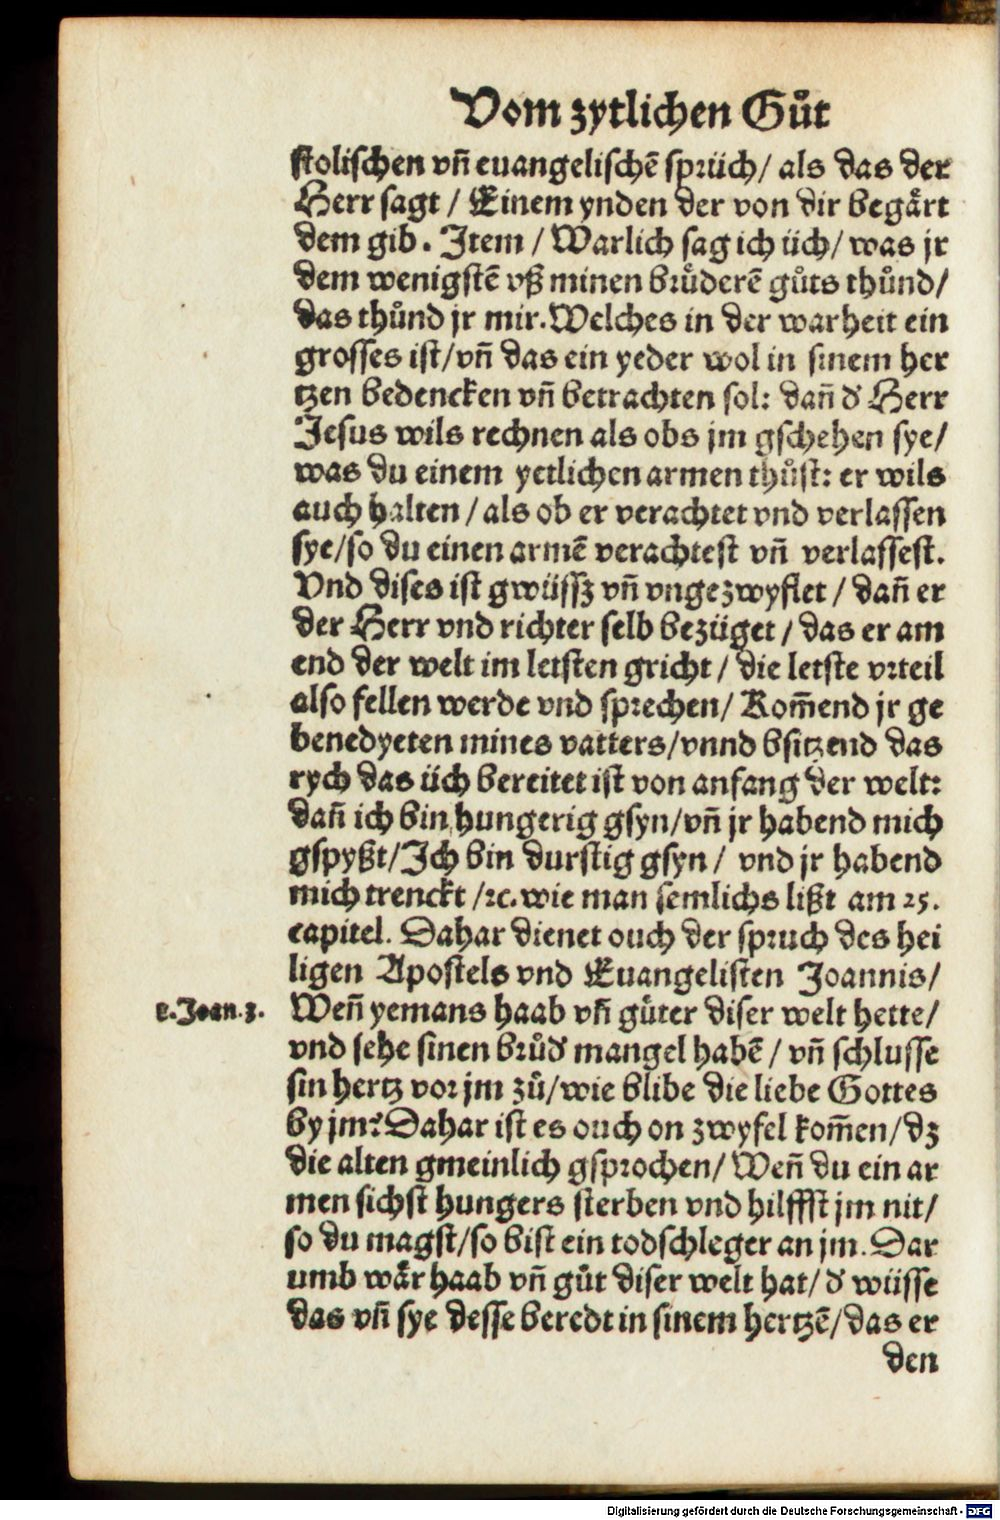 Vom zytlichen Guͦt
stolischen vñ euangelischẽ sprüch/ als das der
Herr sagt / Einem ynden der von dir begaͤrt
dem gib. Item / Warlich sag ich üch/ was jr
dem wenigstẽ vß minen bruͤderẽ guͦts thuͦnd/
das thuͦnd jr mir. Welches in der warheit ein
grosses ist/vñ das ein yeder wol in sinem her
tzen bedencken vñ betrachten sol: dañ d' Herr
Jesus wils rechnen als obs jm gschehen sye/
was du einem yetlichen armen thuͦst: er wils
auch halten / als ob er verachtet vnd verlassen
sye/so du einen armẽ verachtest vñ verlassest.
Vnd dises ist gwüssz vñ vngezwyflet / dañ er
der Herr vnd richter selb bezüget / das er am
end der welt im letsten gricht / die letste vrteil
also fellen werde vnd sprechen/ Kom̃end jr ge
benedyeten mines vatters/vnnd bsitzend das
rych das üch bereitet ist von anfang der welt:
dañ ich bin hungerig gsyn/vñ jr habend mich
gspyßt/Ich bin durstig gsyn / vnd jr habend
mich trenckt /ꝛc. wie man semlichs lißt am 25.
capitel. Dahar dienet ouch der spruch des hei
ligen Apostels vnd Euangelisten Joannis/
1.Joan.3. Weñ yemans haab vñ guͤter diser welt hette/
vnd sehe sinen bruͦd' mangel habẽ / vñ schlusse
sin hertz vor jm zuͦ/wie blibe die liebe Gottes
by jm? Dahar ist es ouch on zwyfel kom̃en/dz
die alten gmeinlich gsprochen/ Weñ du ein ar
men sichst hungers sterben vnd hilffst jm nit/
so du magst/so bist ein todschleger an jm. Dar
umb waͤr haab vñ guͦt diser welt hat/ d' wüsse
das vñ sye desse beredt in sinem hertzẽ/das er
den
Digitalisierung gefördert durch die Deutsche Forschungsgemeinschaft - DFG